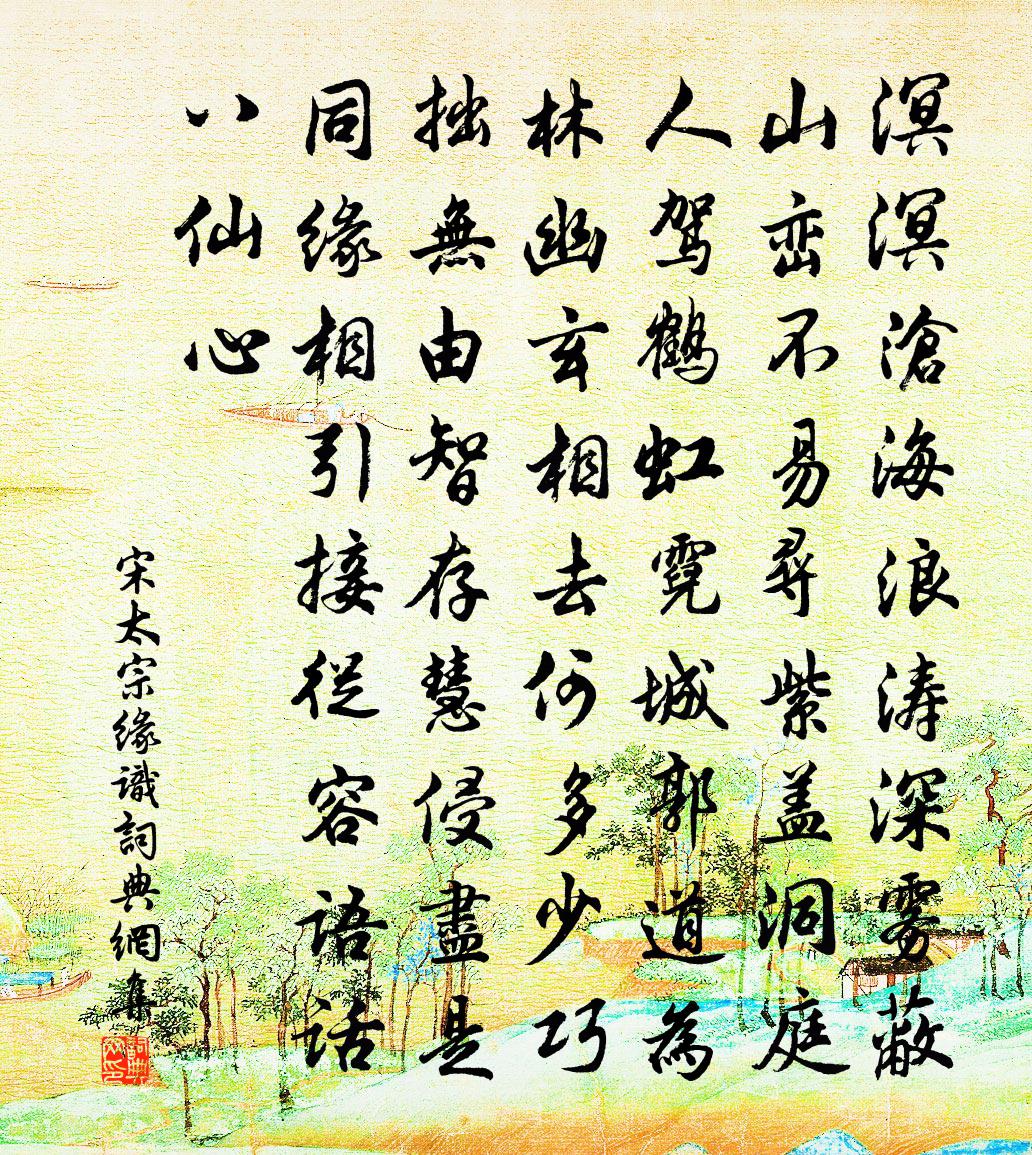 溟溟滄海浪涛深雾蔽
山峦不易尋紫盖洞庭
人駕鶴虹霓城郭道為
林幽玄相去何多少巧
拙無由智存慧侵盡是
同缘相引接從容语话
八仙心
宋太宗缘識詞典網集